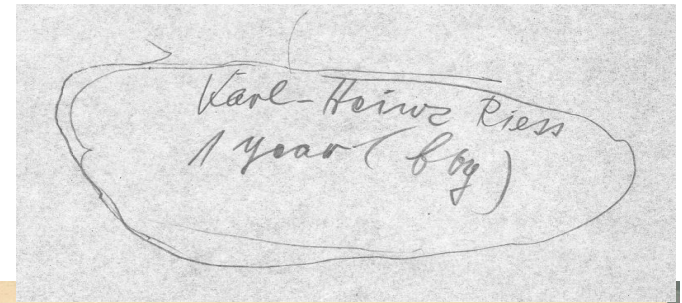 Karl-Heinz Riess
1 year (boy)